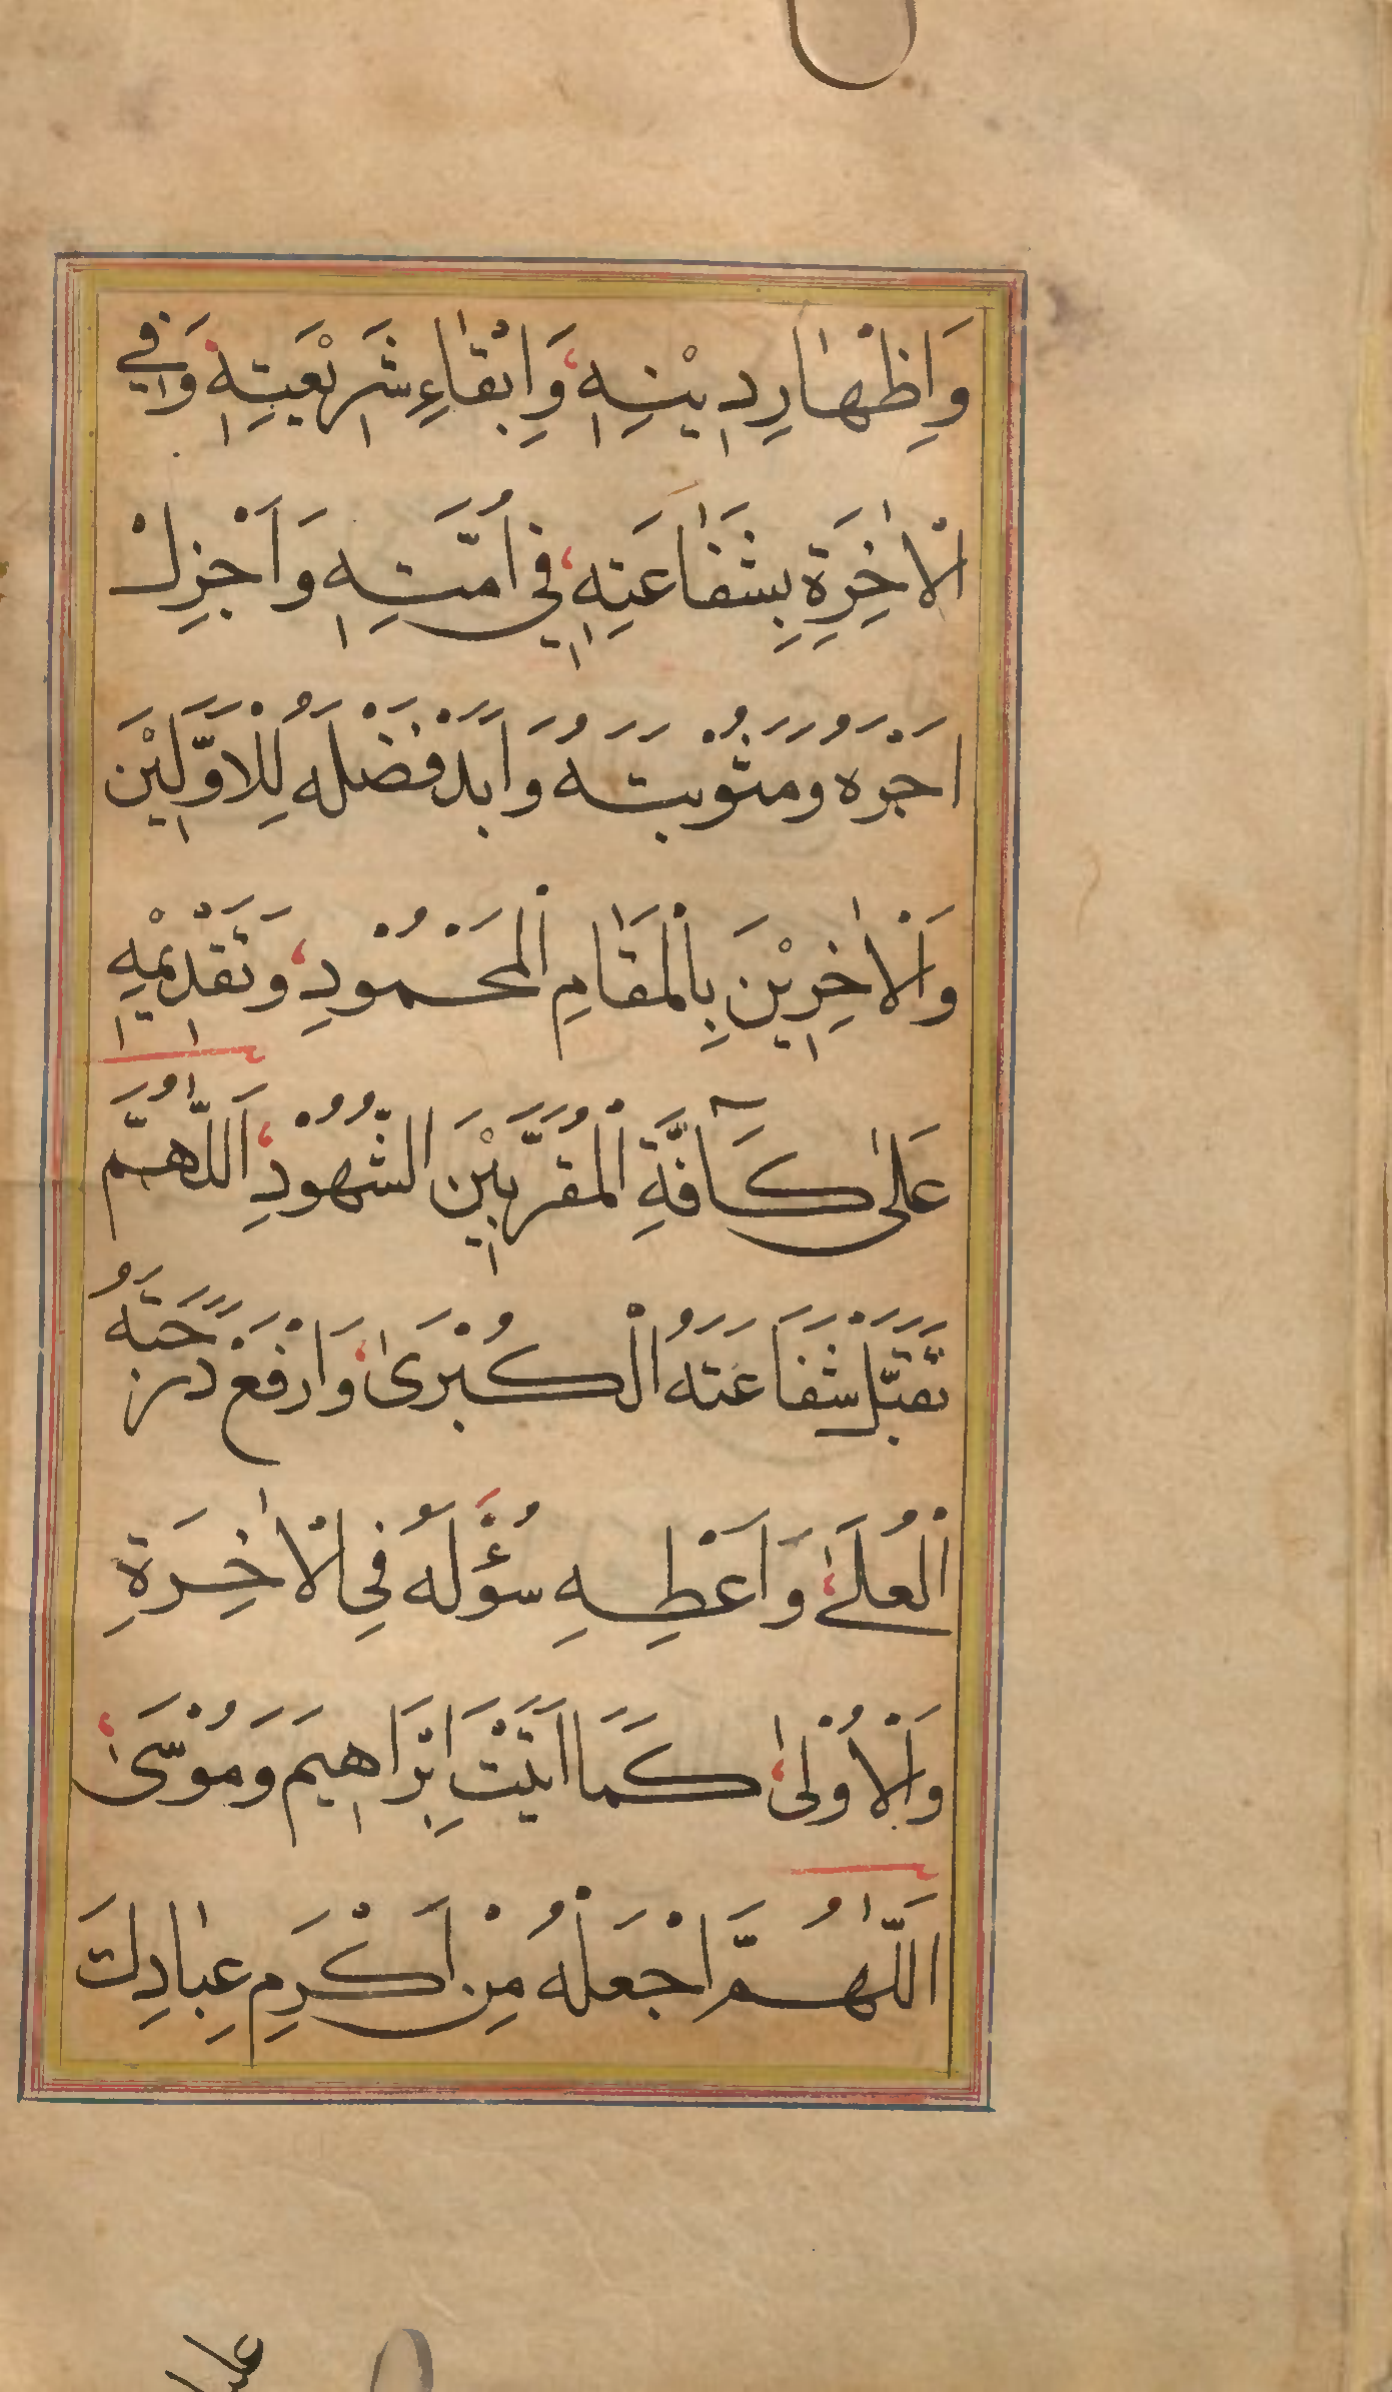 وَاِظْهٰارِ دِيْنِهٖ وَاِبْقٰاءِ شَرِيْعَتِهٖ وَفِي
الْاٰخِرَةِ بِشَفٰاعَتِهٖ فِي اُمَّتِهٖ وَاَجْزِلْ
اَجْرَهُ وَمَثُوْبَتَهُ وَاَبِّدْ فَضْلَهُ لِلْاَوَّلِيْنَ
وَالْاٰخِرِيْنَ بِالْمَقٰامِ الْمَحْمُوْدِ وَتَقْدِيْمِهٖ
عَلٰى كَآفَّةِ الْمُقَرَّبِيْنَ الشُّهُوْدِ اَللّٰهُمَّ
تَقَبَّلْ شَفَاعَتَهُ الْكُبْرَىٰ وَارْفَعْ دَرَجَتَهُ
الْعُلَىٰ وَاَعْطِهِ سُؤْلَهُ فِي الْاٰخِرَةِ
وَالْاُوْلٰى كَمَا اٰتَيْتَ اِبْرَاهِيمَ وَمُوْسَىٰ
اَللّٰهُمَّ اجْعَلْهُ مِنْ اَكْرَمِ عِبٰادِكَ